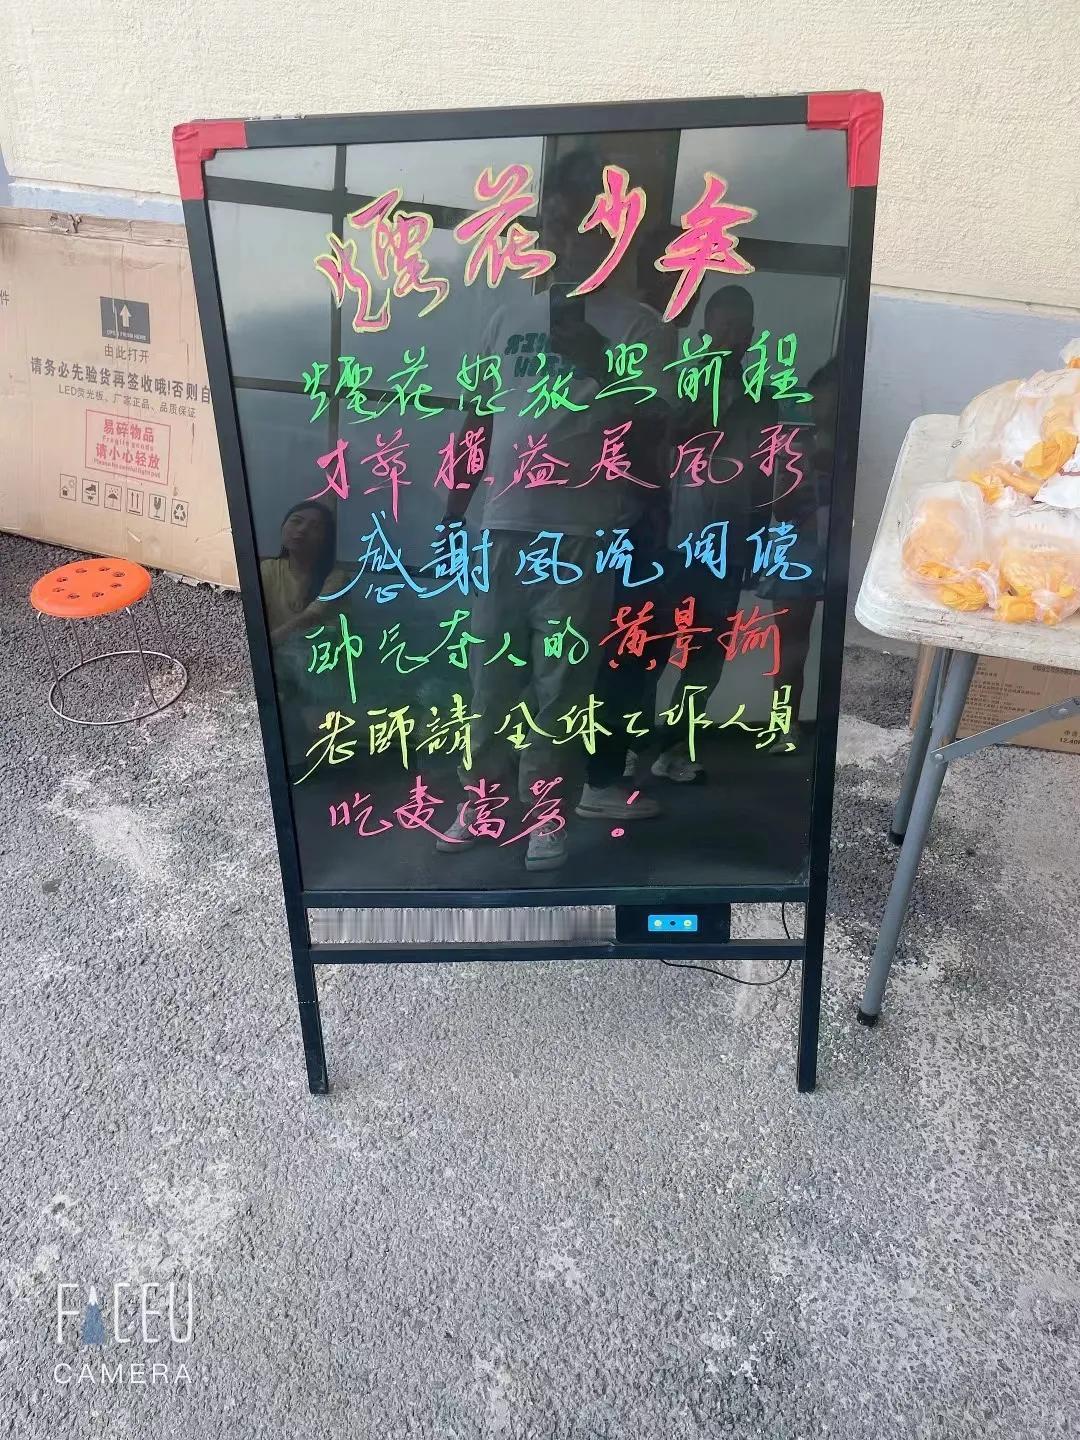 煙花少年
煙花怒放照前程
才華橫溢展風彩
感謝風流倜儻
帥气夺人的黄景瑜
老師請全体工作人員
吃麦當劳！
件
由此打开
请务必先验货再签收哦!否则自
LED荧光板、厂家正品、品质保证
易碎物品
Fragile goods
请小心轻放
FACEU
CAMERA